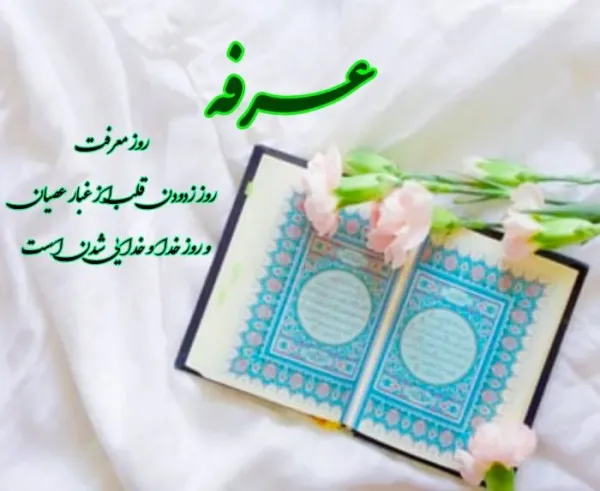 عرفه
روز معرفت
روز زدودن قلب از غبار عصیان
و روز خدا و خدایی شدن است